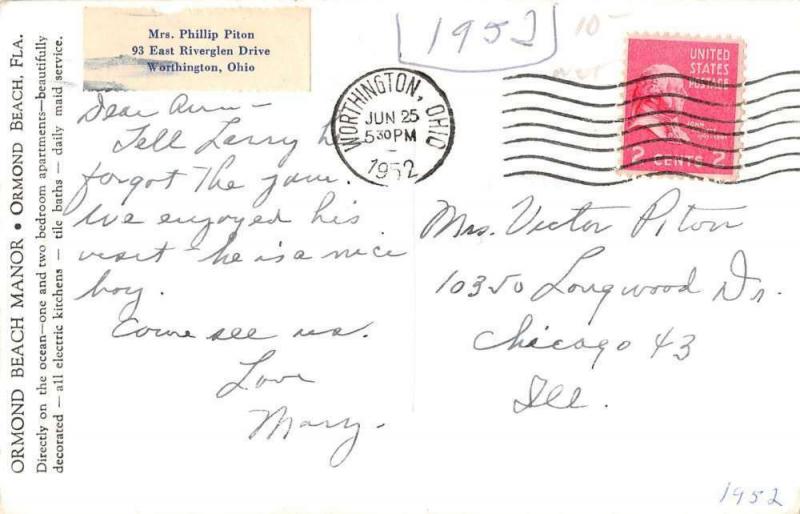 ORMOND BEACH MANOR • ORMOND BEACH, FLA.
Directly on the ocean—one and two bedroom apartments—beautifully
decorated — all electric kitchens — tile baths — daily maid service.
Mrs. Phillip Piton
93 East Riverglen Drive
Worthington, Ohio
[1952]
10-
WORTHINGTON, OHIO
JUN 25
5 30 PM
1952
UNITED
STATES
POSTAGE
JOHN
2 CENTS 2
Dear Ann -
Tell Larry he
forgot the jam.
We enjoyed his
visit - he is a nice
boy.
Come see us.
Love
Mary -
Mrs. Victor Piton
10350 Longwood Dr.
Chicago 43
Ill.
1952